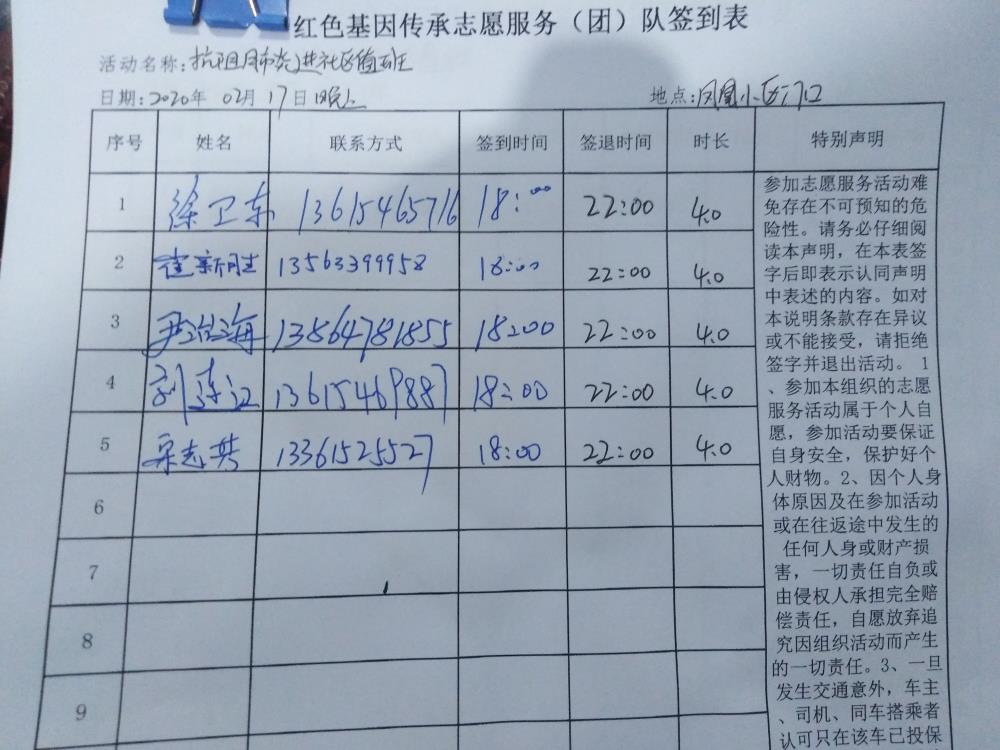 红色基因传承志愿服务（团）队签到表
活动名称:抗阻肺炎进社区值班
日期:2020年 02月 17日晚上 地点:凤凰小区门口
序号 姓名 联系方式 签到时间 签退时间 时长 特别声明
1 徐卫东 13615465716 18:00 22:00 4.0
2 崔新胜 13563399958 18:00 22:00 4.0
3 尹治海 13864781855 18:00 22:00 4.0
4 刘 13615469887 18:00 22:00 4.0
5 宋志共 13361525527 18:00 22:00 4.0
6
7
8
9
参加志愿服务活动难
免存在不可预知的危
险性。请务必仔细阅
读本声明，在本表签
字后即表示认同声明
中表述的内容。如对
本说明条款存在异议
或不能接受，请拒绝
签字并退出活动。 1
、参加本组织的志愿
服务活动属于个人自
愿，参加活动要保证
自身安全，保护好个
人财物。2、因个人身
体原因及在参加活动
或在往返途中发生的
任何人身或财产损
害，一切责任自负或
由侵权人承担完全赔
偿责任，自愿放弃追
究因组织活动而产生
的一切责任。3、一旦
发生交通意外，车主
、司机、同车搭乘者
认可只在该车已投保